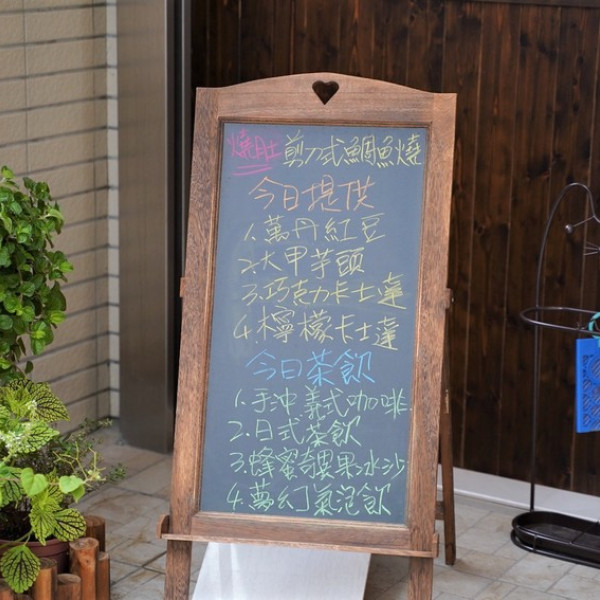 燒肚 剪刀式鯛魚燒
今日提供
1.萬丹紅豆
2.大甲芋頭
3.巧克力卡士達
4.檸檬卡士達
今日茶飲
1.手沖義式咖啡
2.日式茶飲
3.蜂蜜奇異果冰沙
4.夢幻氣泡飲